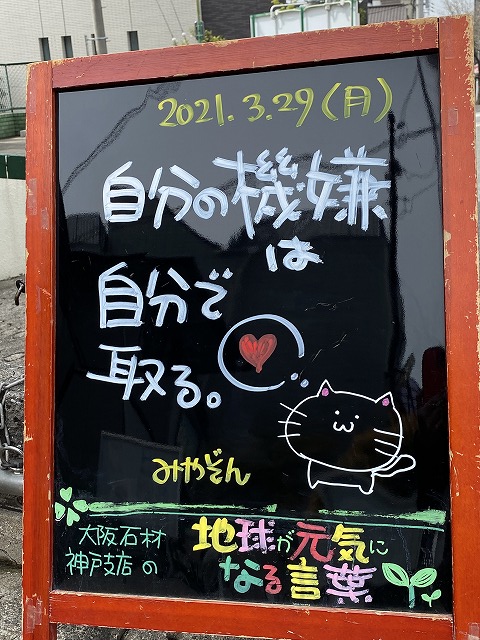 2021.3.29(月)
自分の機嫌
は
自分で
取る。
みやぞん
大阪石材
神戸支店の
地球が元気に
なる言葉